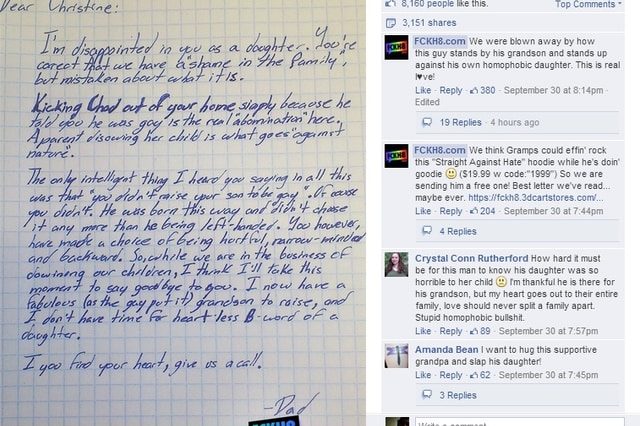 Dear Christine:
I'm disappointed in you as a daughter. You're
correct that we have a "shame in the family",
but mistaken about what it is.
Kicking Chad out of your home simply because he
told you he was gay is the real "abomination" here.
A parent disowning her child is what goes "against
nature".
The only intelligent thing I heard you saying in all this
was that "you didn't raise your son to be gay". Of course
you didn't. He was born this way and didn't choose
it any more than he being left-handed. You however,
have made a choice of being hurtful, narrow-minded
and backward. So, while we are in the business of
disowning our children, I think I'll take this
moment to say goodbye to you. I now have a
fabulous (as the gay put it) grandson to raise, and
I don't have time for heart-less B-word of a
daughter.
If you find your heart, give us a call.
-Dad
FCKH8
8,160 people like this.
Top Comments
3,151 shares
FCKH8.com We were blown away by how
this guy stands by his grandson and stands up
against his own homophobic daughter. This is real
l♥ve!
Like · Reply · 380 · September 30 at 8:14pm ·
Edited
19 Replies · 4 hours ago
FCKH8.com We think Gramps could effin' rock
this "Straight Against Hate" hoodie while he's doin'
goodie ($19.99 w code:"1999") So we are
sending him a free one! Best letter we've read...
maybe ever. https://fckh8.3dcartstores.com/...
Like · Reply · 204 · September 30 at 7:44pm
4 Replies
Crystal Conn Rutherford How hard it must
be for this man to know his daughter was so
horrible to her child I'm thankful he is there for
his grandson, but my heart goes out to their entire
family, love should never split a family apart.
Stupid homophobic bullshit.
Like · Reply · 89 · September 30 at 7:57pm
Amanda Bean I want to hug this supportive
grandpa and slap his daughter!
Like · Reply · 62 · September 30 at 7:45pm
3 Replies
Write a comment